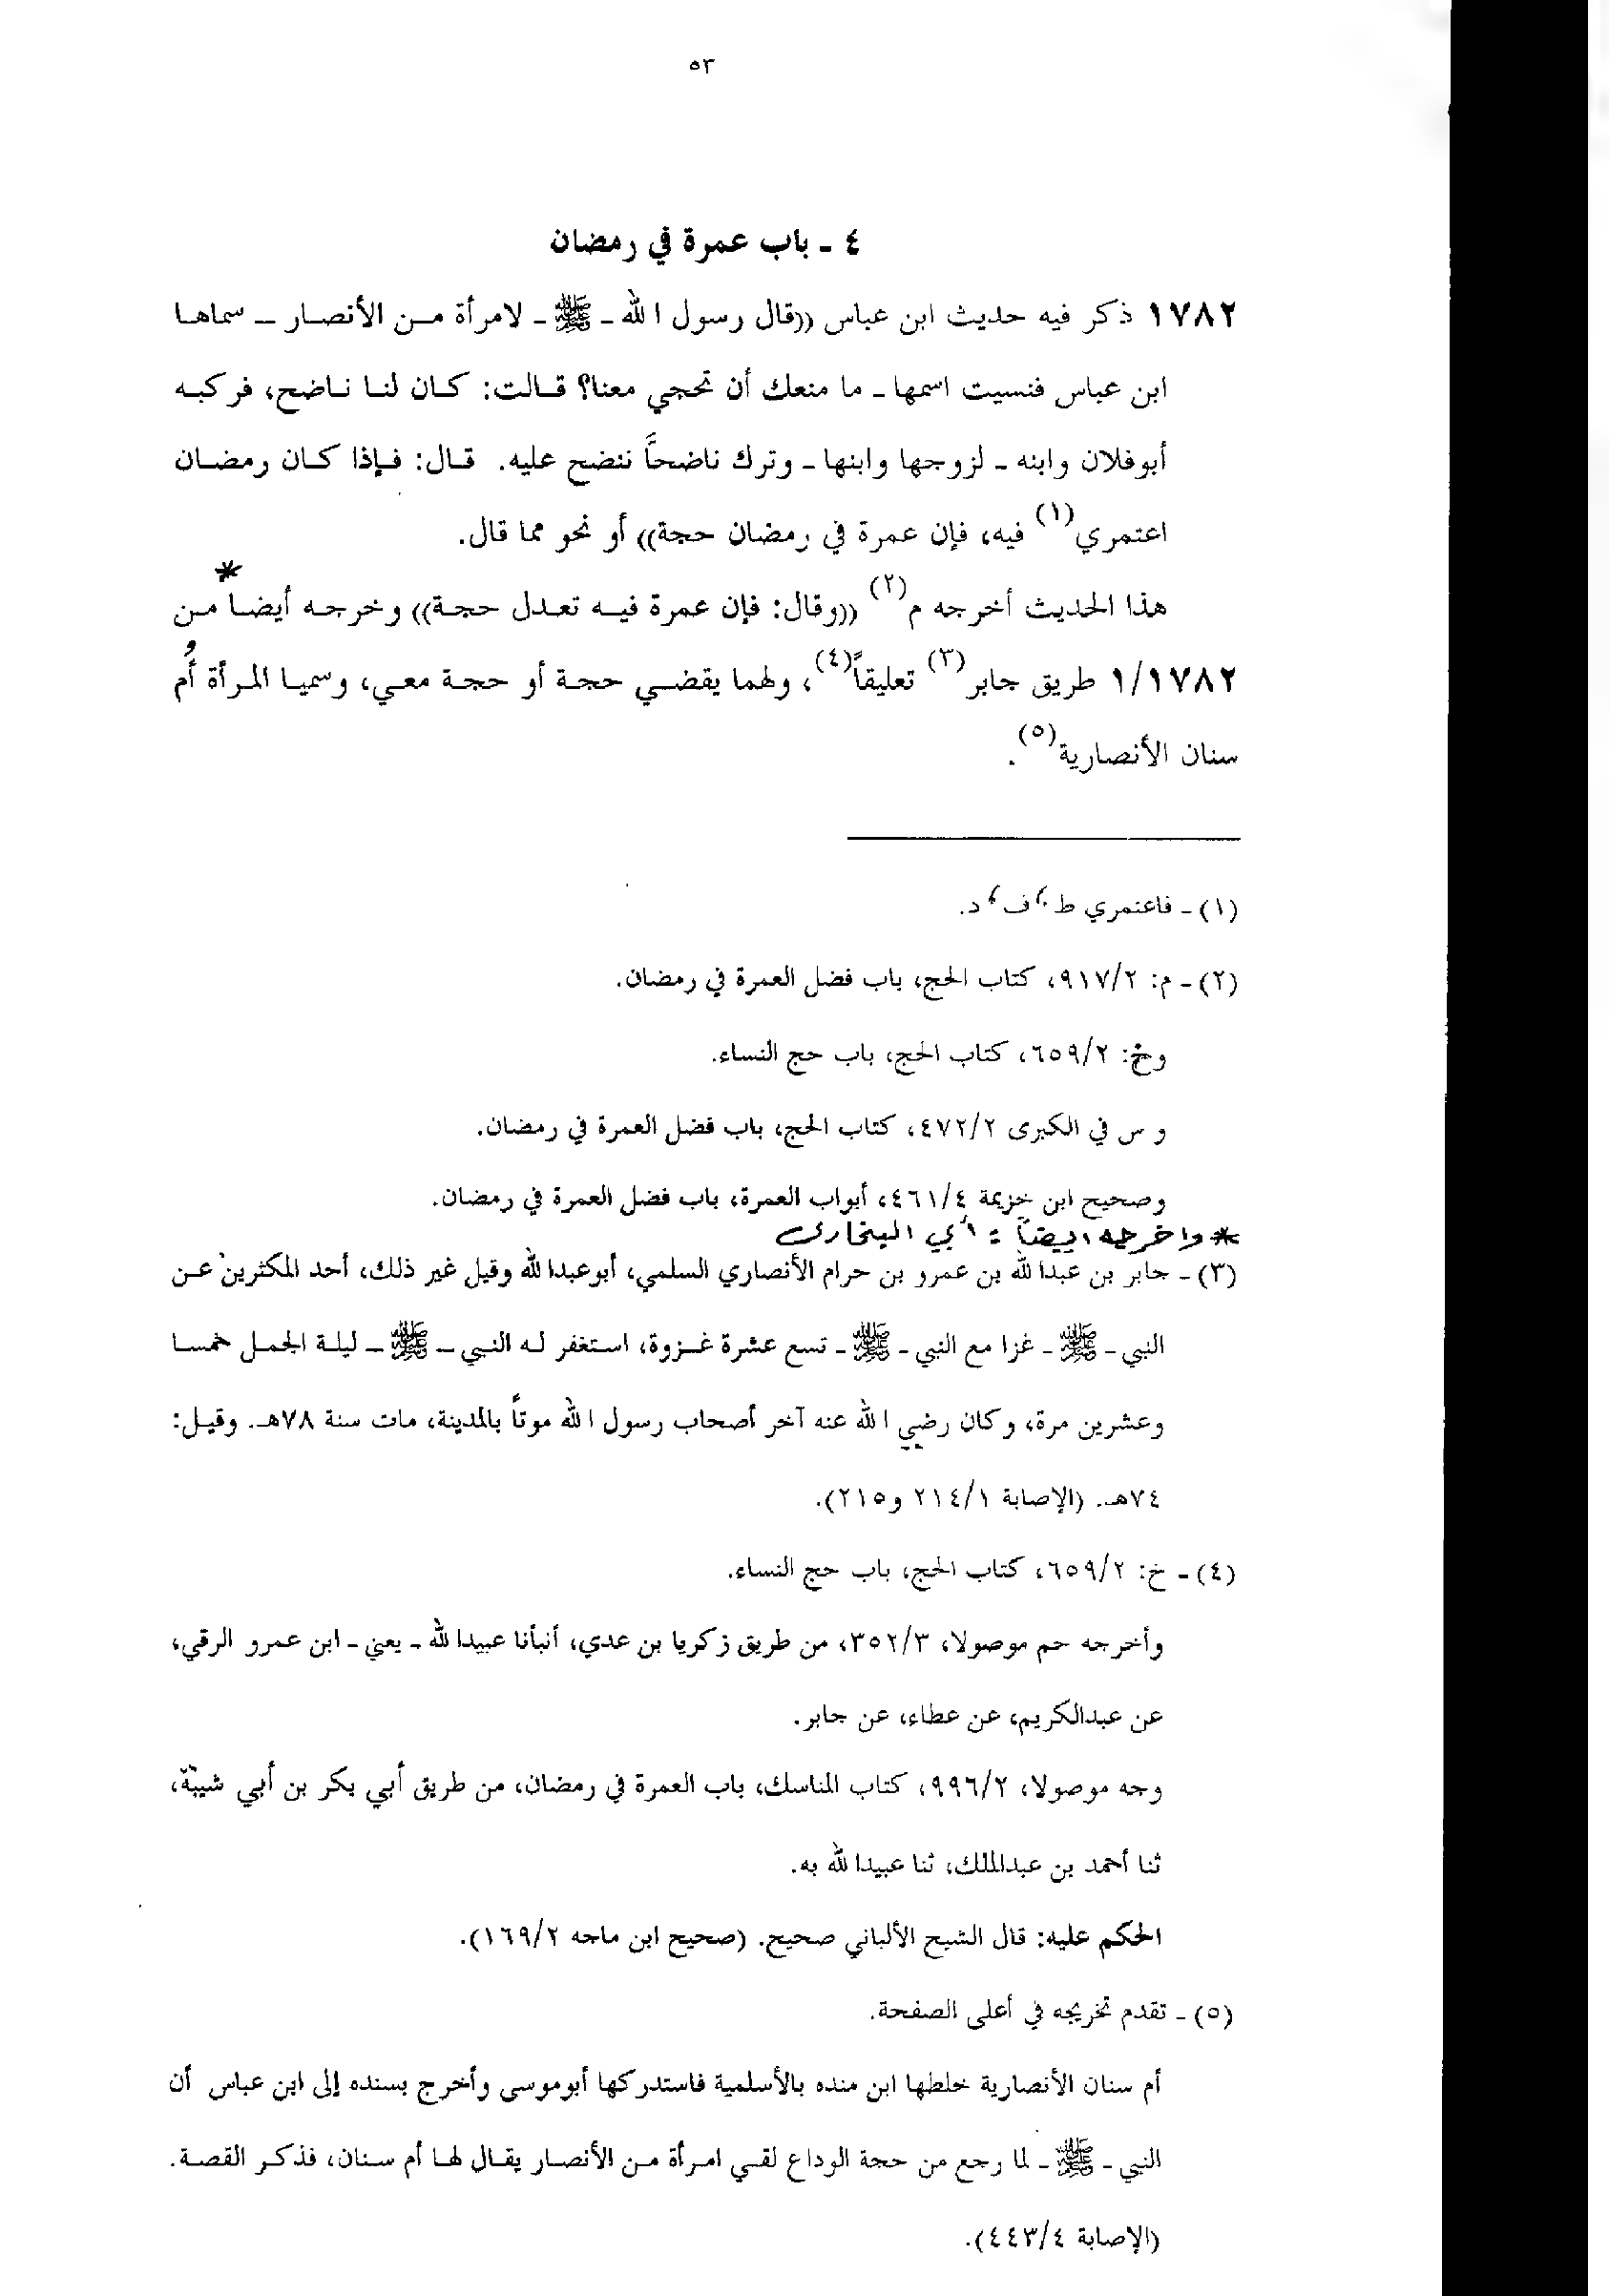 ٥٣
٤ ـ باب عمرة في رمضان
١٧٨٢ ذكر فيه حديث ابن عباس ((قال رسول الله ـ ﷺ ـ لامرأة من الأنصار ــ سماها
ابن عباس فنسيت اسمها ـ ما منعك أن تحجي معنا؟ قالت: كان لنا ناضح، فركبه
أبوفلان وابنه ـ لزوجها وابنها ـ وترك ناضحاً ننضح عليه. قال: فإذا كان رمضان
اعتمري(١) فيه، فإن عمرة في رمضان حجة)) أو نحو مما قال.
هذا الحديث أخرجه م(٢) ((وقال: فإن عمرة فيه تعدل حجة)) وخرجه أيضا* من
١/١٧٨٢ طريق جابر(٣) تعليقاً(٤)، ولهما يقضي حجة أو حجة معي، وسميا المرأة أُم
سنان الأنصارية(٥).
(١) ـ فاعتمري ط، ف، د.
(٢) ـ م: ٩١٧/٢، كتاب الحج، باب فضل العمرة في رمضان.
وخ: ٦٥٩/٢، كتاب الحج، باب حج النساء.
و س في الكبرى ٤٧٢/٢، كتاب الحج، باب فضل العمرة في رمضان.
وصحيح ابن خزيمة ٤٦١/٤، أبواب العمرة، باب فضل العمرة في رمضان.
* واخرجه ايضاً : أي البخاري
(٣) ـ جابر بن عبدالله بن عمرو بن حرام الأنصاري السلمي، أبوعبدالله وقيل غير ذلك، أحد المكثرين عن
النبي ـ ﷺ ـ غزا مع النبي ـ ﷺ ـ تسع عشرة غزوة، استغفر له النبي ـ ﷺ ـ ليلة الجمل خمسا
وعشرين مرة، وكان رضي الله عنه آخر أصحاب رسول الله موتاً بالمدينة، مات سنة ٧٨هـ. وقيل:
٧٤هـ. (الإصابة ٢١٤/١ و٢١٥).
(٤) ـ خ: ٦٥٩/٢، كتاب الحج، باب حج النساء.
وأخرجه حم موصولا، ٣٥٢/٣، من طريق زكريا بن عدي، أنبأنا عبيدالله ـ يعني ـ ابن عمرو الرقي،
عن عبدالكريم، عن عطاء، عن جابر.
وجه موصولا، ٩٩٦/٢، كتاب المناسك، باب العمرة في رمضان، من طريق أبي بكر بن أبي شيبة،
ثنا أحمد بن عبدالملك، ثنا عبيدالله به.
الحكم عليه: قال الشيخ الألباني صحيح. (صحيح ابن ماجه ١٦٩/٢).
(٥) ـ تقدم تخريجه في أعلى الصفحة.
أم سنان الأنصارية خلطها ابن منده بالأسلمية فاستدركها أبوموسى وأخرج بسنده إلى ابن عباس أن
النبي ـ ﷺ ـ لما رجع من حجة الوداع لقي امرأة من الأنصار يقال لها أم سنان، فذكر القصة.
(الإصابة ٤٤٣/٤).